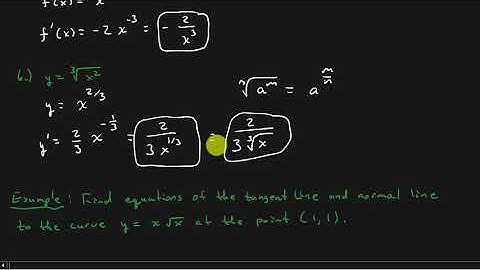 f(x) = x
f'(x) = -2 x^{-3} = - 2/x^3
6.) y = ∛x²
y = x^{2/3}
ⁿ√a^m = a^{m/n}
y' = 2/3 x^{-1/3} = 2/(3 x^{1/3}) = 2/(3 ∛x)
Example: Find equations of the tangent line and normal line
to the curve y = x √x at the point (1,1).